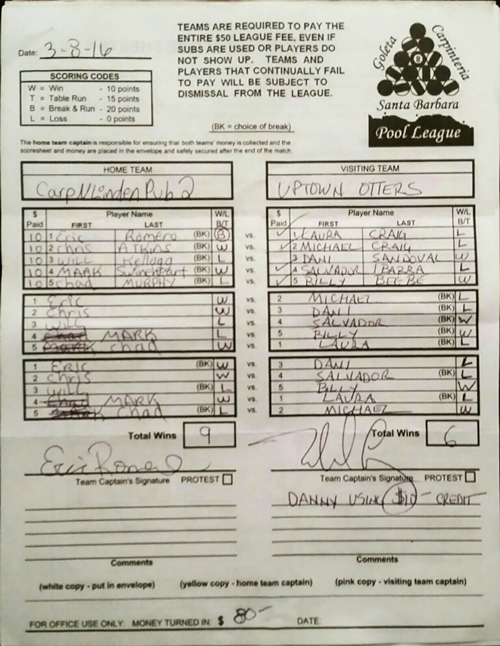 TEAMS ARE REQUIRED TO PAY THE
ENTIRE $50 LEAGUE FEE, EVEN IF
SUBS ARE USED OR PLAYERS DO
NOT SHOW UP. TEAMS AND
PLAYERS THAT CONTINUALLY FAIL
TO PAY WILL BE SUBJECT TO
DISMISSAL FROM THE LEAGUE.
Date: 3-8-16
SCORING CODES
W = Win - 10 points
T = Table Run - 15 points
B = Break & Run - 20 points
L = Loss - 0 points
Goleta Carpinteria
8
Santa Barbara
Pool League
(BK = choice of break)
The home team captain is responsible for ensuring that both teams' money is collected and the
scoresheet and money are placed in the envelope and safely secured after the end of the match.
HOME TEAM VISITING TEAM
CarpNLinden Pub 2 UPTOWN OTTERS
$ Paid Player Name FIRST LAST W/L B/T $ Paid Player Name FIRST LAST W/L B/T
10 1 Eric Romero (BK) B vs. 1 LAURA CRAIG L
10 2 Chris ATKINS W vs. 2 MICHAEL CRAIG L
10 3 WILL Kellogg (BK) L vs. 3 DANI SANDOVAL W
10 4 MARK (BK) W vs. 4 SALVADOR IBARRA L
10 5 Chad MURPHY (BK) L vs. 5 BILLY BEEBE W
1 Eric W vs. 2 MICHAEL (BK) L
2 Chris W vs. 3 DANI (BK) L
3 Will L vs. 4 SALVADOR (BK) W
4 MARK L vs. 5 BILLY (BK) W
5 Chad W vs. 1 LAURA (BK) L
1 ERIC (BK) W vs. 3 DANI L
2 Chris W vs. 4 SALVADOR (BK) L
3 Will (BK) L vs. 5 BILLY W
4 MARK W vs. 1 LAURA (BK) L
5 Chad (BK) L vs. 2 MICHAEL W
Total Wins 9 Total Wins 6
Team Captain's Signature PROTEST Team Captain's Signature PROTEST
DANNY USING $10- CREDIT
Comments Comments
(white copy - put in envelope) (yellow copy - home team captain) (pink copy - visiting team captain)
FOR OFFICE USE ONLY: MONEY TURNED IN $ 80- DATE: